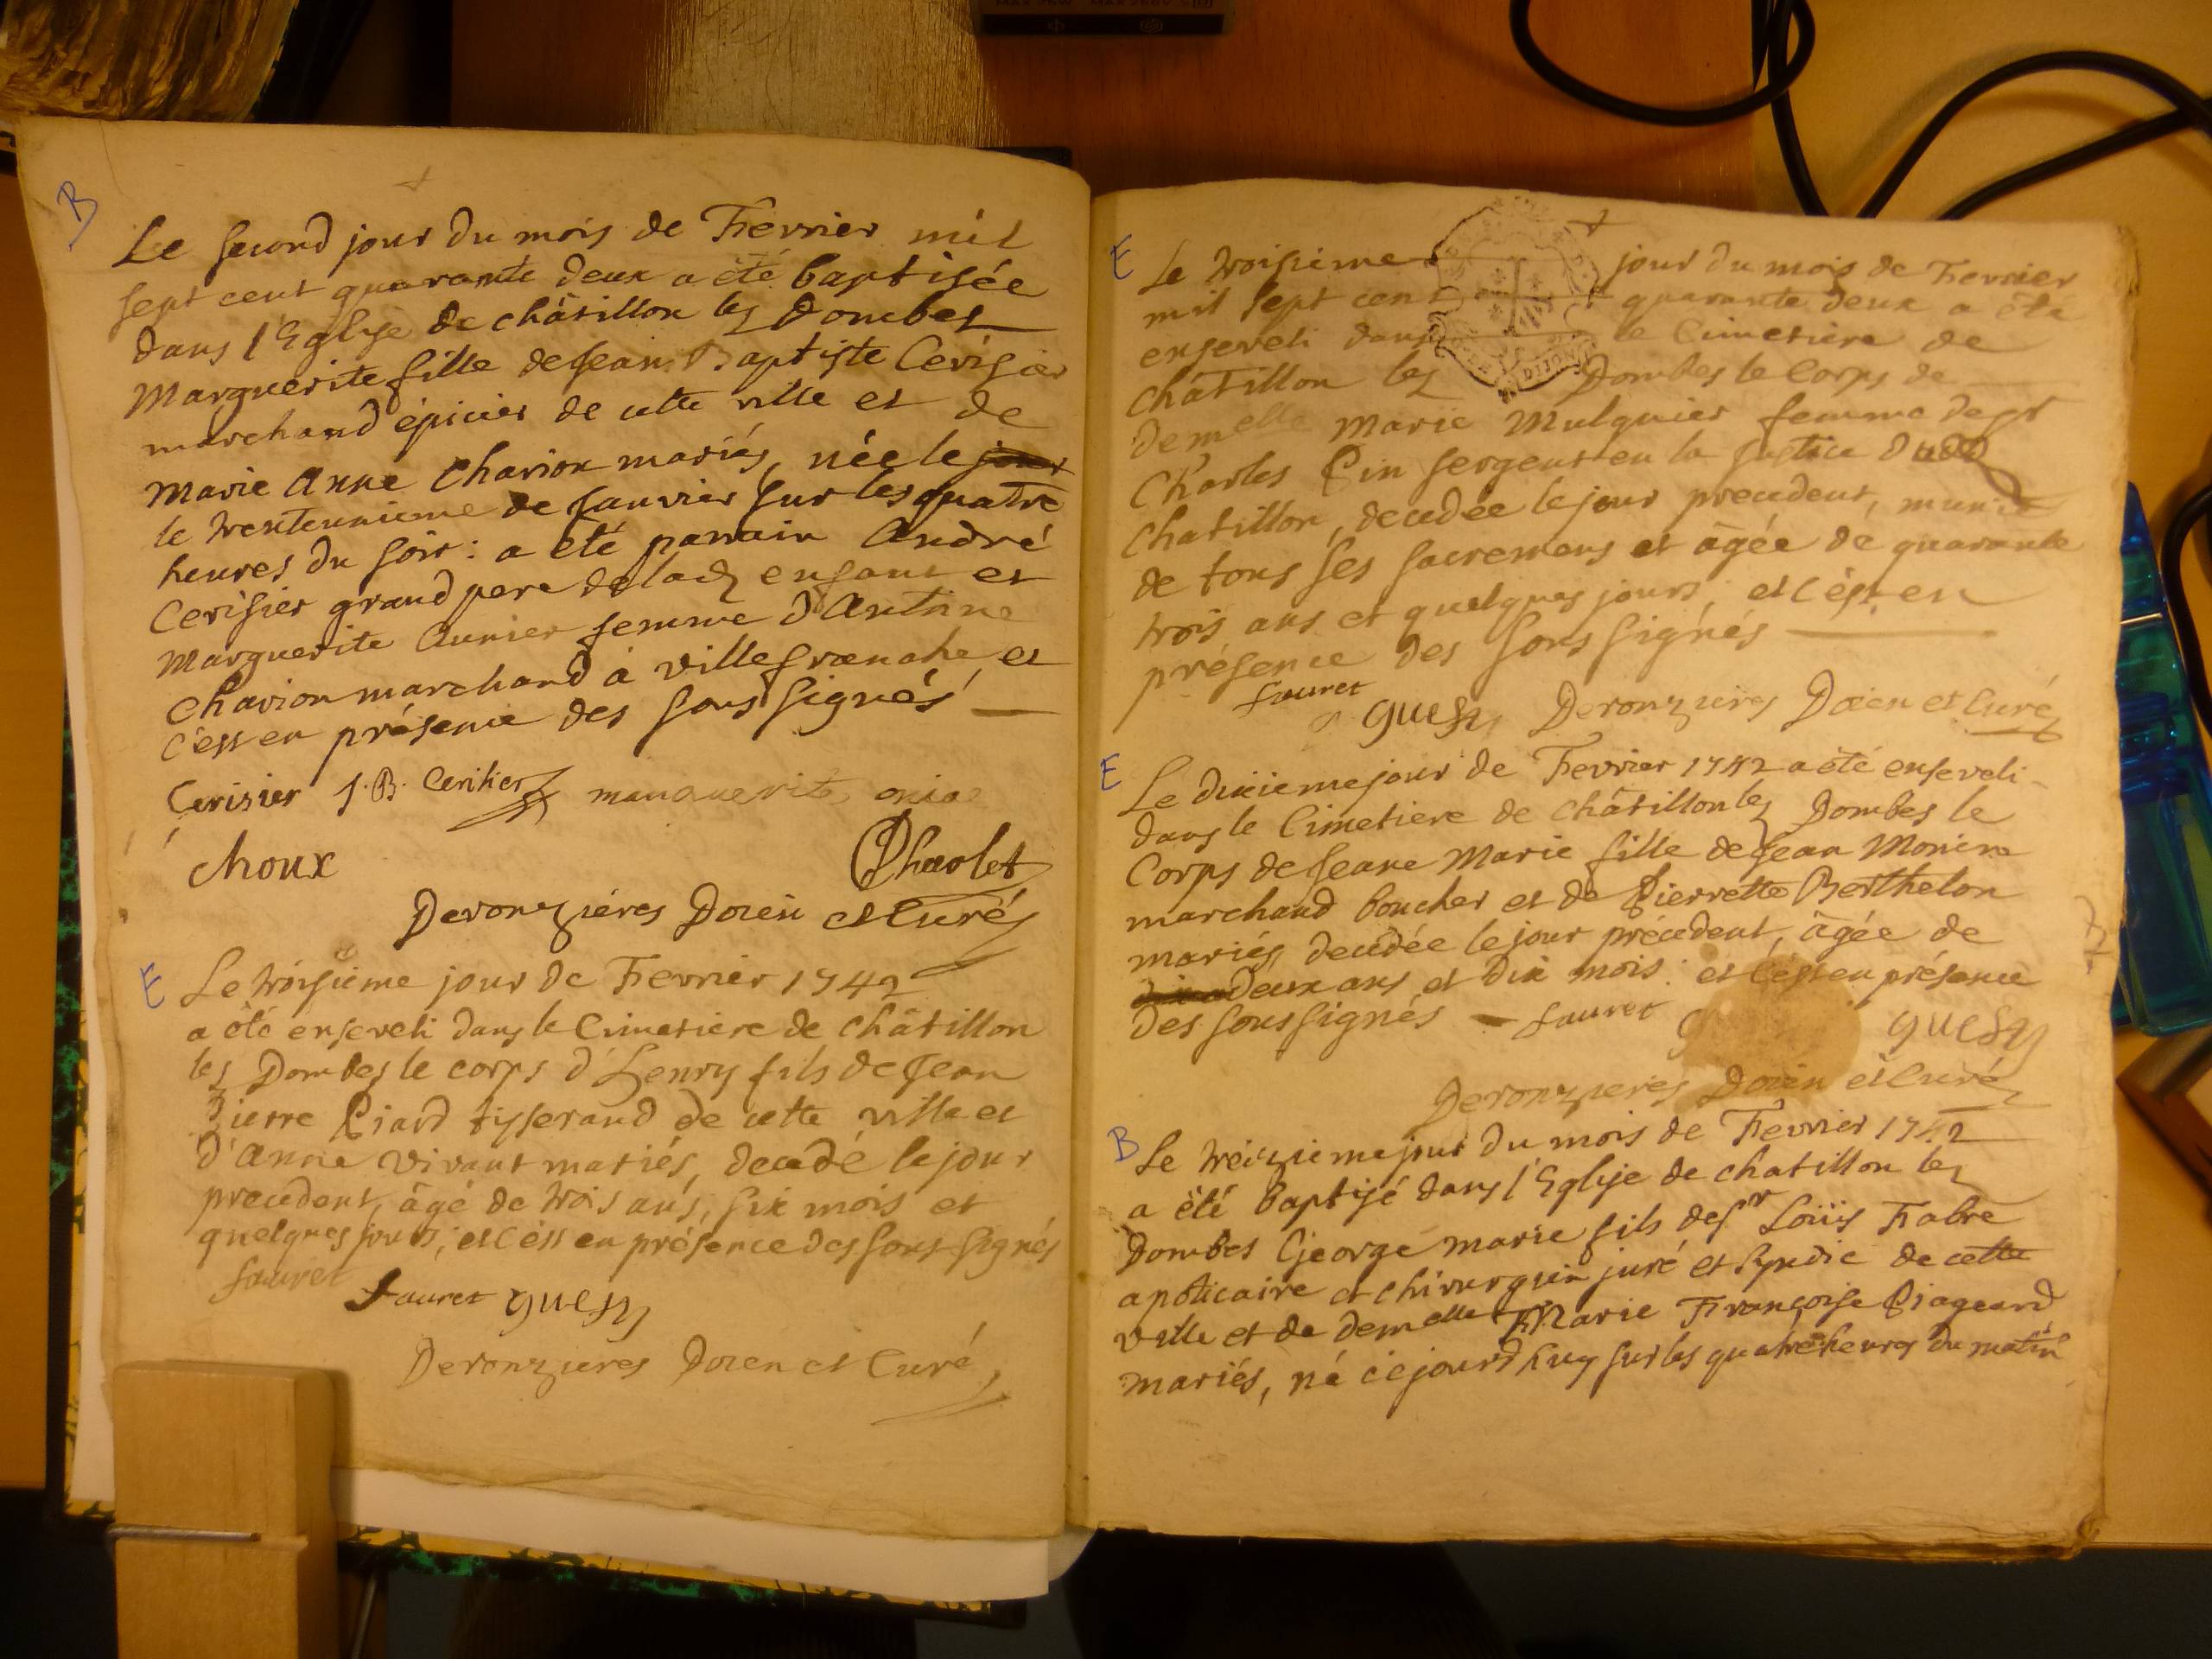 B
Le second jour du mois de Fevrier mil
sept cent quarante deux a été baptisée
dans l'Eglise de châtillon les Dombes
Marguerite fille de Jean Baptiste Cerisier
marchand épicier de cette ville et de
Marie Anne Charion mariés, née le jour
le trenteunieme de Janvier sur les quatre
heures du soir : a été parrain André
Cerisier grand pere de lad enfant et
Marguerite Aunier femme d'Antoine
Charion marchand à villefranche, et
c'est en présence des sous signés
Cerisier J. B. Cerisier
choux Charlet
Deronzieres Doien et Curé
E
Le troisieme jour de Fevrier 1742
a été enseveli dans le Cimetiere de châtillon
les Dombes le corps d'Henry fils de Jean
Pierre Piard tisserand de cette ville et
d'Anne Vivant mariés, decedé le jour
precedent, âgé de trois ans, six mois et
quelques jours ; et c'est en présence des sous signés
fauret fauret guesy
Deronzieres Doien et Curé
E
Le troisieme jour du mois de Fevrier
mil sept cent quarante deux a été
enseveli dans le Cimetiere de
châtillon les Dombes le Corps de
demelle Marie Mulquier femme de sr
Charles Pin sergent en la Justice du
Chatillon, decedée le jour precedent, munie
de tous ses sacremens et âgée de quarante
trois ans et quelques jours, et c'est en
présence des sous signés
fauret guesy Deronzieres Doien et Curé
E
Le dixieme jour de Fevrier 1742 a été enseveli
dans le Cimetiere de châtillon les Dombes le
Corps de Jeane Marie fille de Jean Monin
marchand boucher et de Pierrette Berthelon
mariés, decédée le jour précedent, âgée de
deux ans et dix mois : et c'est en présence
des sous signés fauret guesy
Deronzieres Doien et Curé
B
Le treizieme jour du mois de Fevrier 1742
a été baptisé dans l'Eglise de chatillon les
Dombes George marie fils de sr Loüis Fabre
apoticaire et chirurgien juré et syndic de cette
ville et de demelle Marie Françoise Piageard
mariés, né cejourd'huy sur les quatre heures du matin